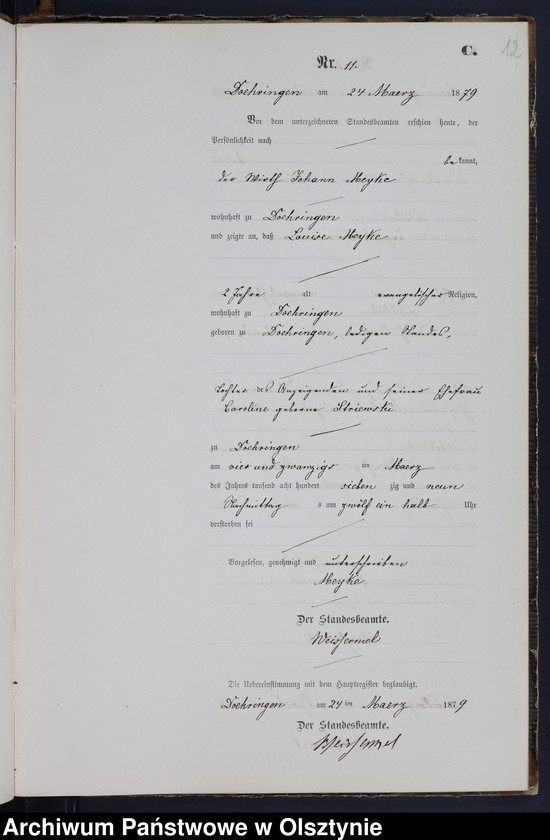 C.
12
Nr. 11.
Doehringen am 24 Maerz 1879
Vor dem unterzeichneten Standesbeamten erschien heute, der
Persönlichkeit nach
bekannt,
der Wirth Johann Meyke
wohnhaft zu Doehringen
und zeigte an, daß Louise Meyke
2 Jahre alt evangelischer Religion,
wohnhaft zu Doehringen
geboren zu Doehringen, ledigen Standes,
Tochter des Anzeigenden und seiner Ehefrau
Caroline geborne Striewski
zu Doehringen
am vier und zwanzigs ten Maerz
des Jahres tausend acht hundert sieben zig und neun
Nachmittag s um zwölf ein halb Uhr
verstorben sei
Vorgelesen, genehmigt und unterschrieben
Meyke
Der Standesbeamte.
Weissermel
Die Uebereinstimmung mit dem Hauptregister beglaubigt.
Doehringen am 24 ten Maerz 1879
Der Standesbeamte.
Weissermel
Archiwum Państwowe w Olsztynie